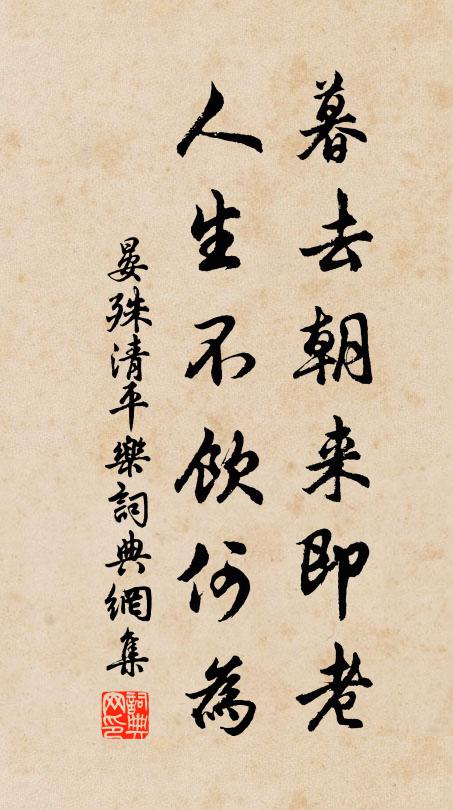 暮去朝来即老
人生不飲何為
晏殊清平樂詞典網集
詞典网印